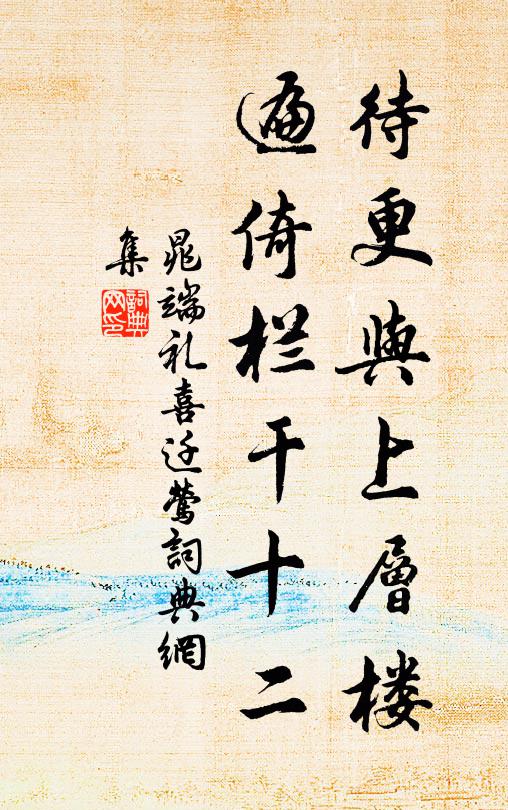 待更与上層楼
遍倚栏干十二
晁端礼喜迁莺詞典網
集
詞典网印